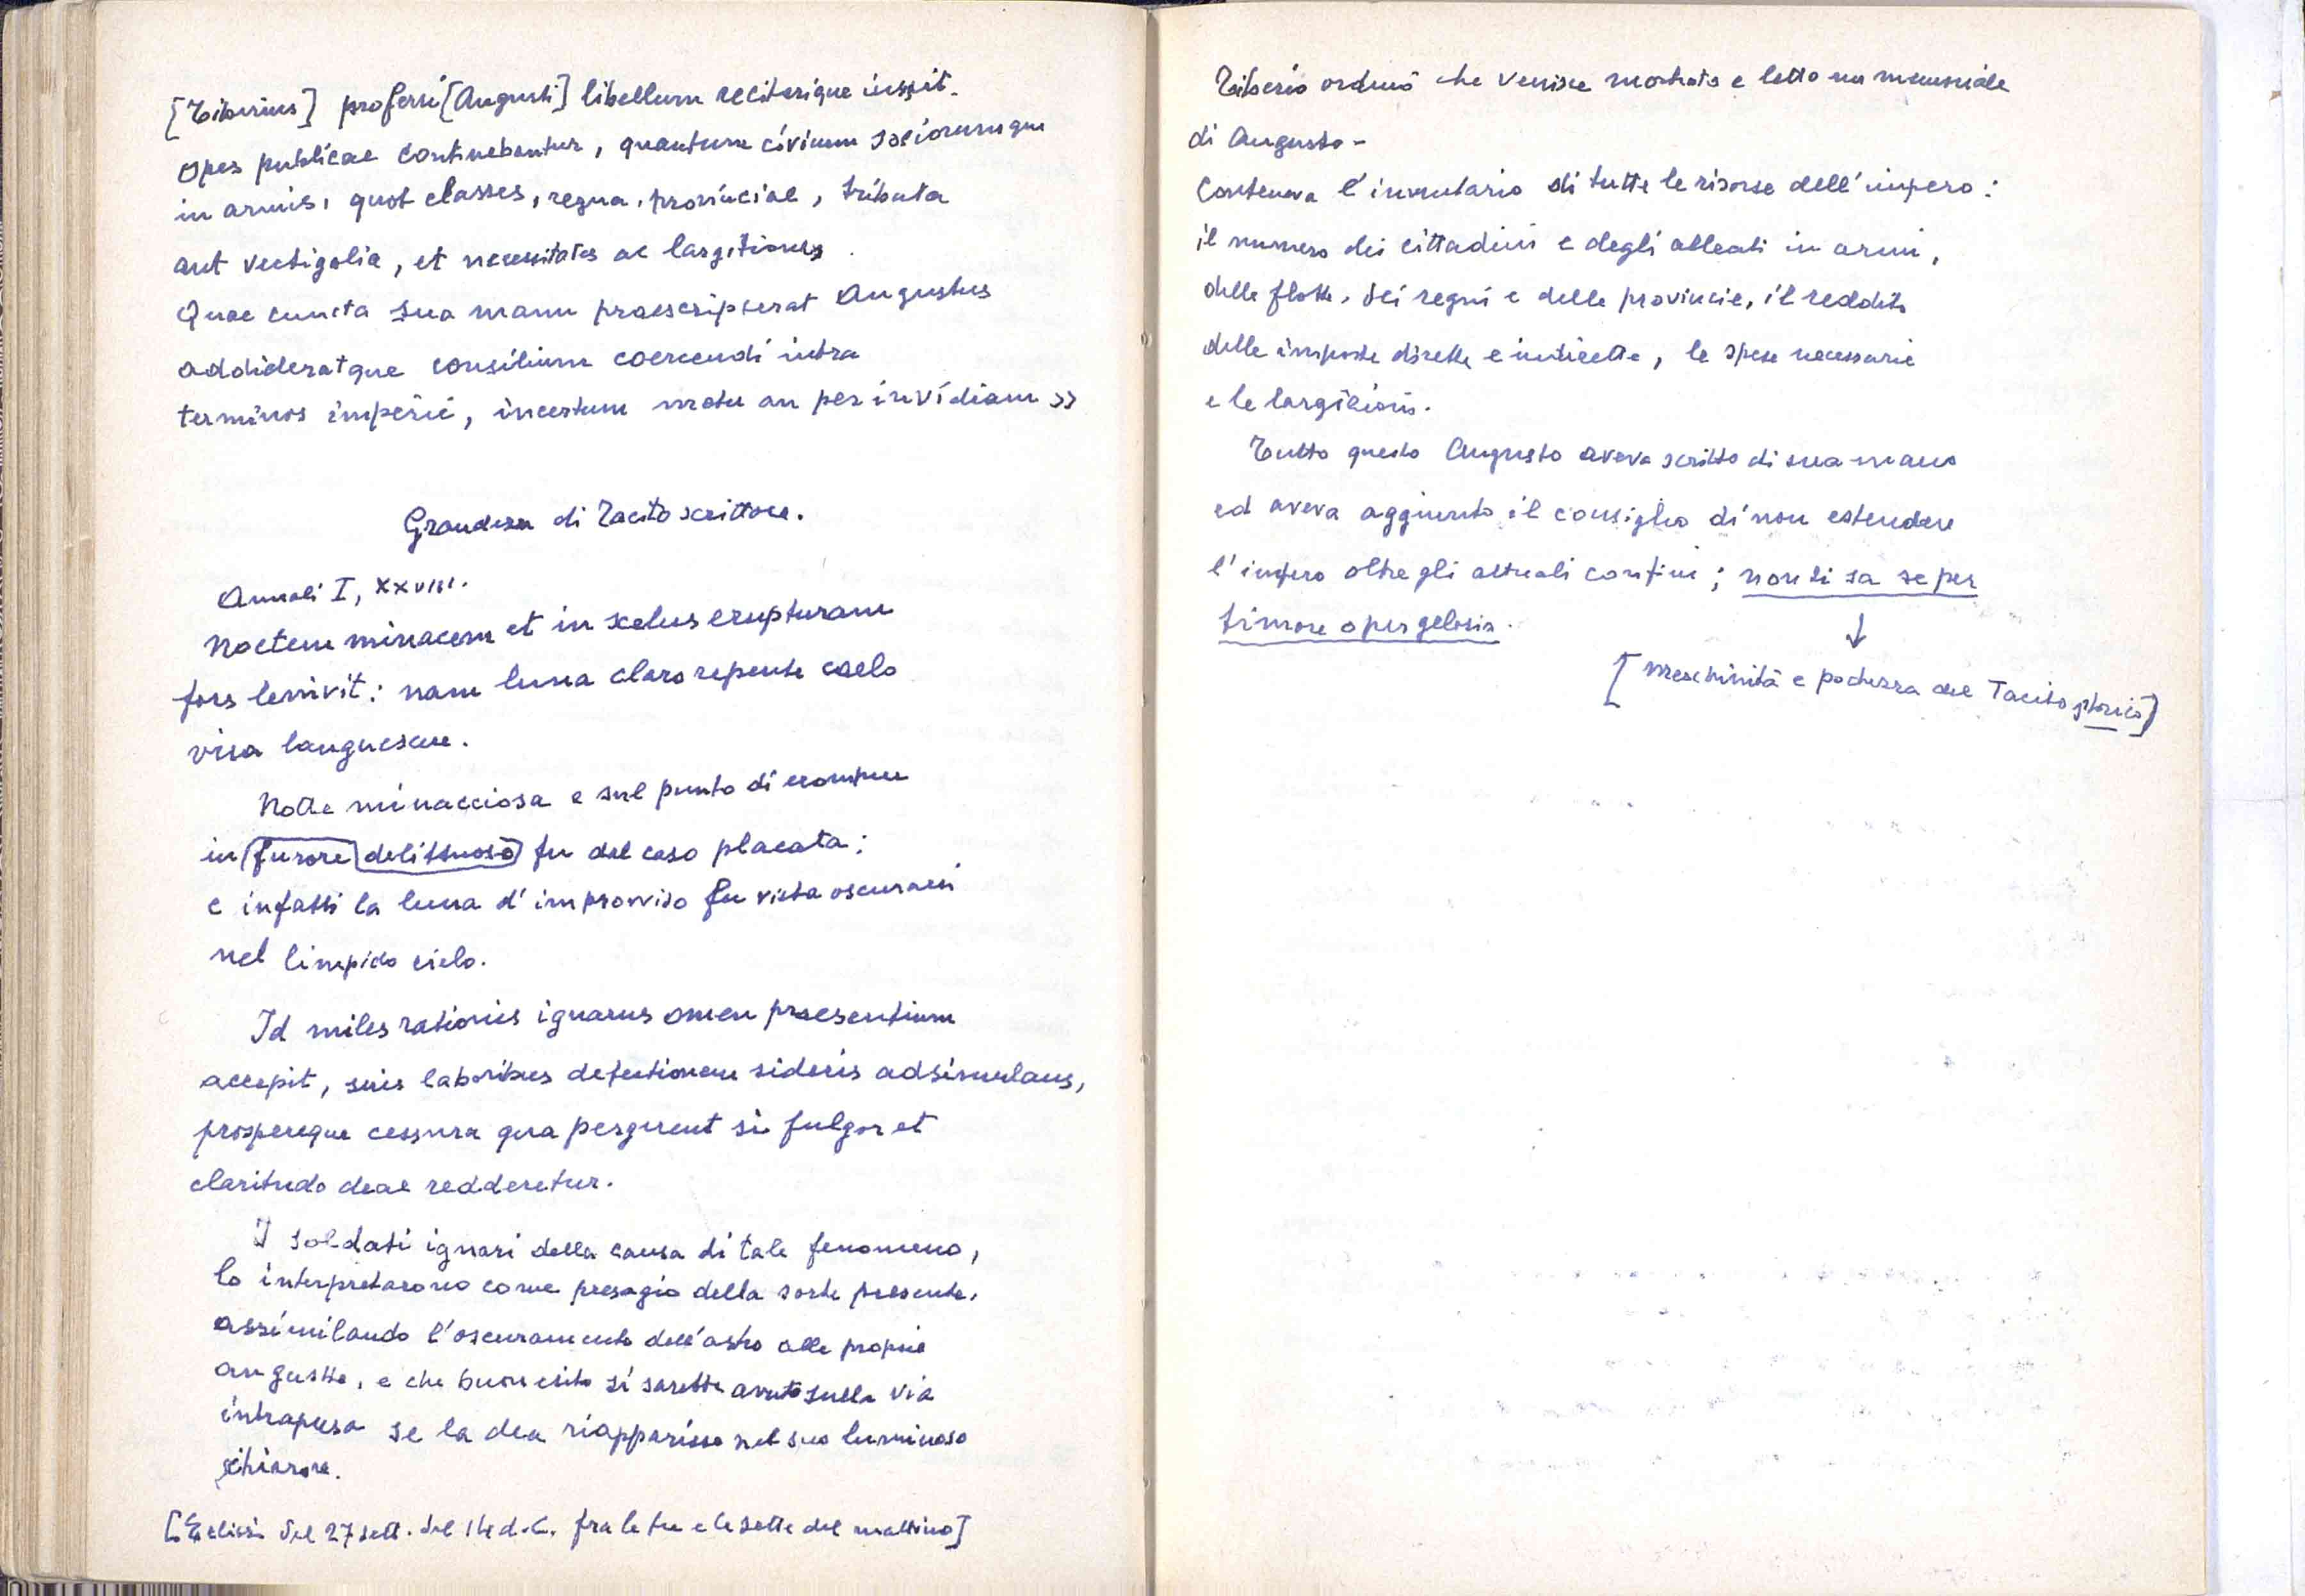 [Tiberius] proferri [Augusti] libellum recitarique iussit.
Opes publicae continebantur, quantum civium sociorumque
in armis, quot classes, regna, provinciae, tributa
aut vectigalia, et necessitates ac largitiones.
Quae cuncta sua manu praescripserat Augustus
addideratque consilium coercendi intra
terminos imperii, incertum metu an per invidiam »
Grandezza di Tacito scrittore.
Annali I, XXVIII.
Noctem minacem et in scelus erupturam
fors lenivit: nam luna claro repente caelo
visa languescere.
Notte minacciosa e sul punto di erompere
in furore delittuoso fu dal caso placata:
e infatti la luna d'improvviso fu vista oscurarsi
nel limpido cielo.
Id miles rationis ignarus omen praesentium
accepit, suis laboribus defectionem sideris adsimulans,
prospereque cessura qua pergerent si fulgor et
claritudo deae redderetur.
I soldati ignari della causa di tale fenomeno,
lo interpretarono come presagio della sorte presente,
assimilando l'oscuramento dell'astro alle proprie
angustie, e che buon esito si sarebbe avuto sulla via
intrapresa se la dea riapparisse nel suo luminoso
chiarore.
[Eclissi del 27 sett. del 14 d.C. fra le tre e le sette del mattino]
Tiberio ordinò che venisse mostrato e letto un memoriale
di Augusto-
Conteneva l'inventario di tutte le risorse dell'impero:
il numero dei cittadini e degli alleati in armi,
delle flotte, dei regni e delle provincie, il reddito
delle imposte dirette e indirette, le spese necessarie
e le largizioni.
Tutto questo Augusto aveva scritto di sua mano
ed aveva aggiunto il consiglio di non estendere
l'impero oltre gli attuali confini; non si sa se per
timore o per gelosia.
↓
[Meschinità e pochezza del Tacito storico]